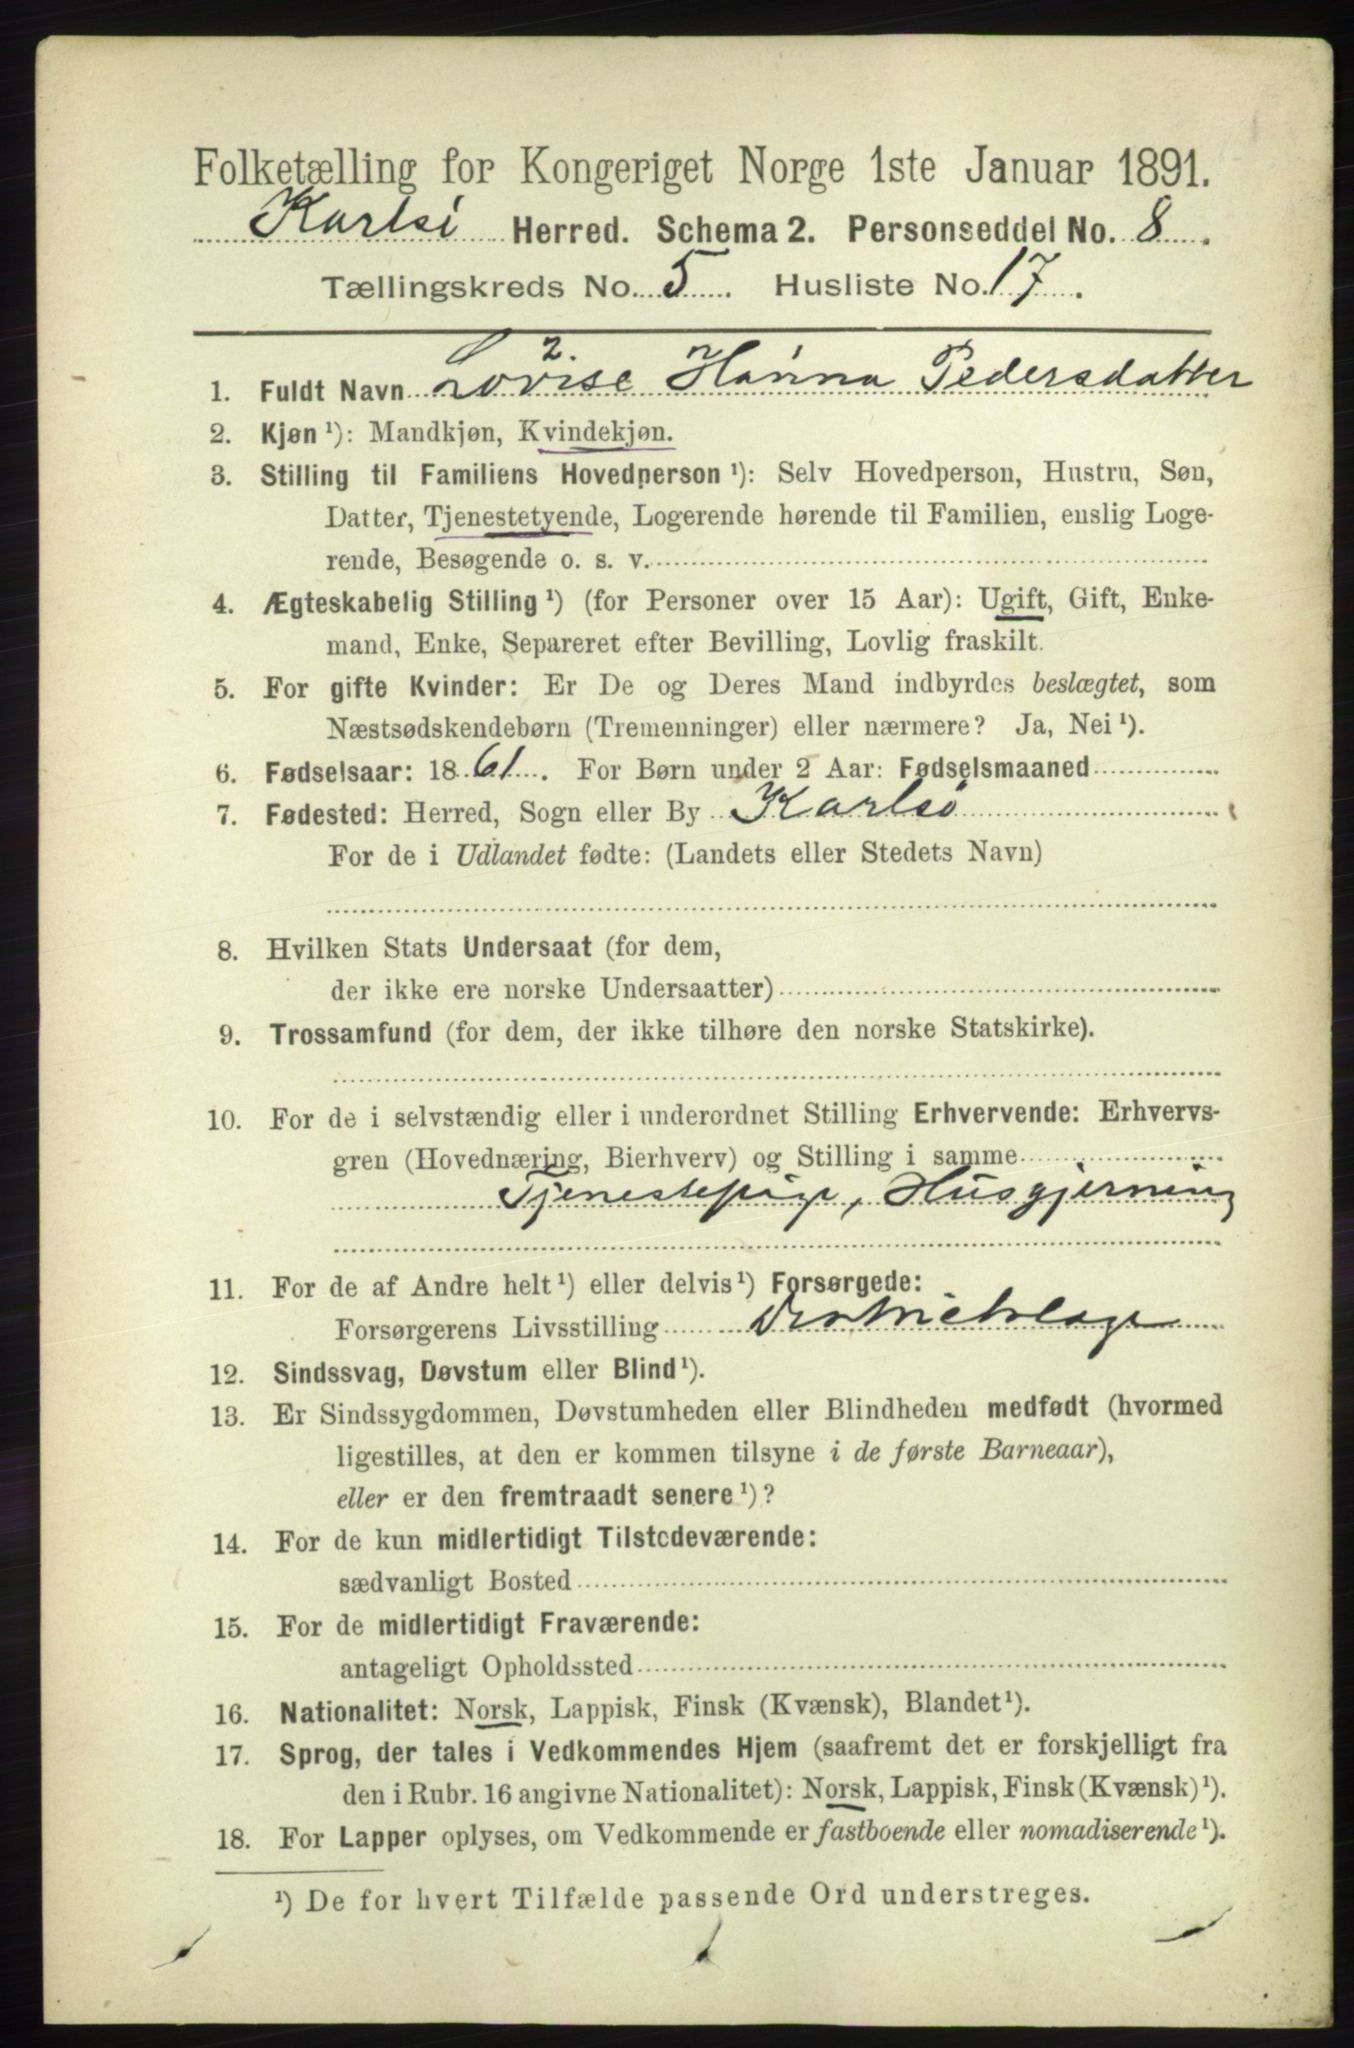 Folketælling for Kongeriget Norge 1ste Januar 1891.
Karlsö Herred. Schema 2. Personseddel No. 8.
Tællingskreds No. 5. Husliste No. 17.
2.
1. Fuldt Navn Lovise Hanna Pedersdatter
2. Kjøn ¹): Mandkjøn, Kvindekjøn.
3. Stilling til Familiens Hovedperson ¹): Selv Hovedperson, Hustru, Søn,
Datter, Tjenestetyende, Logerende hørende til Familien, enslig Loge-
rende, Besøgende o. s. v.
4. Ægteskabelig Stilling ¹) (for Personer over 15 Aar): Ugift, Gift, Enke-
mand, Enke, Separeret efter Bevilling, Lovlig fraskilt.
5. For gifte Kvinder: Er De og Deres Mand indbyrdes beslægtet, som
Næstsødskendebørn (Tremenninger) eller nærmere? Ja, Nei ¹).
6. Fødselsaar: 1861. For Børn under 2 Aar: Fødselsmaaned
7. Fødested: Herred, Sogn eller By Karlsö
For de i Udlandet fødte: (Landets eller Stedets Navn)
8. Hvilken Stats Undersaat (for dem,
der ikke ere norske Undersaatter)
9. Trossamfund (for dem, der ikke tilhøre den norske Statskirke).
10. For de i selvstændig eller i underordnet Stilling Erhvervende: Erhvervs-
gren (Hovednæring, Bierhverv) og Stilling i samme
Tjenestepige, Husgjerning
11. For de af Andre helt ¹) eller delvis ¹) Forsørgede:
Forsørgerens Livsstilling Distriktslæge
12. Sindssvag, Døvstum eller Blind ¹).
13. Er Sindssygdommen, Døvstumheden eller Blindheden medfødt (hvormed
ligestilles, at den er kommen tilsyne i de første Barneaar),
eller er den fremtraadt senere ¹)?
14. For de kun midlertidigt Tilstedeværende:
sædvanligt Bosted
15. For de midlertidigt Fraværende:
antageligt Opholdssted
16. Nationalitet: Norsk, Lappisk, Finsk (Kvænsk), Blandet ¹).
17. Sprog, der tales i Vedkommendes Hjem (saafremt det er forskjelligt fra
den i Rubr. 16 angivne Nationalitet): Norsk, Lappisk, Finsk (Kvænsk) ¹).
18. For Lapper oplyses, om Vedkommende er fastboende eller nomadiserende ¹).
¹) De for hvert Tilfælde passende Ord understreges.